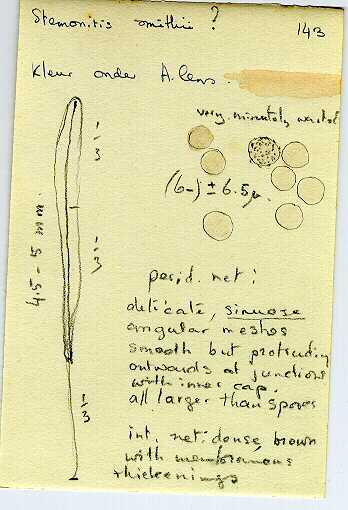 Stemonitis smithii ?
143
Kleur onder A. lens.
very minutely warted
(6-) ± 6.5 µ.
1/3
1/3
1/3
mm
perid. net:
delicate, sinuose
angular meshes
smooth but protruding
outwards at junctions
with inner cap.
all larger than spores
int. net: dense, brown
with membranous
thickenings